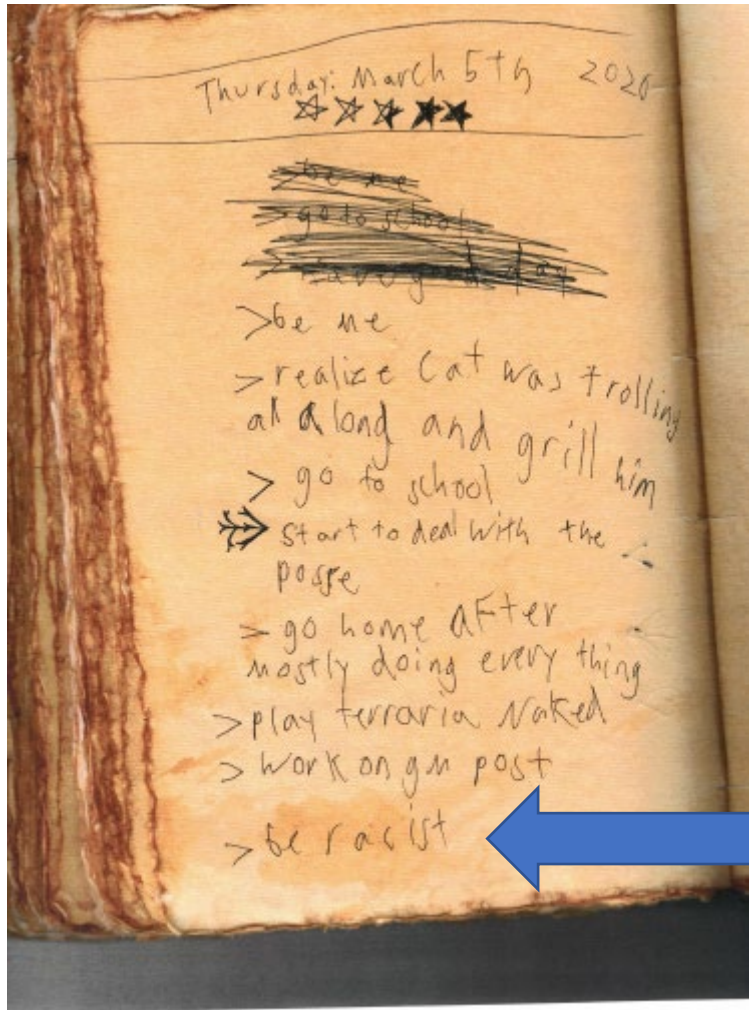 Thursday: March 5th 2020
>be me
>go to school
>be me
>realize Cat was trolling
all along and grill him
> go to school
start to deal with the
posse
> go home after
mostly doing every thing
>play terraria Naked
>work on gm post
>be racist